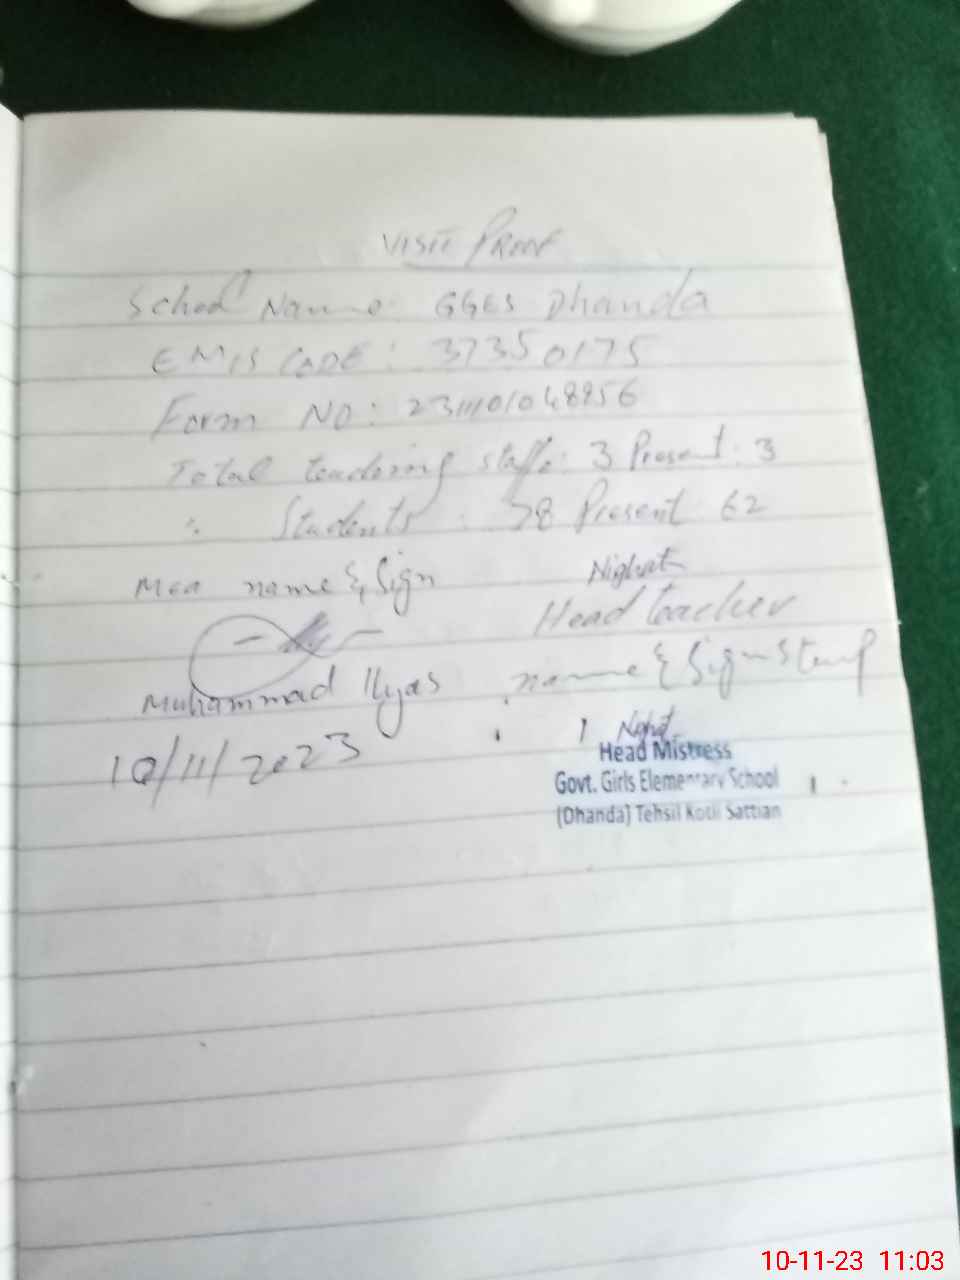 VISIT PROOF
School Name: GGES Dhanda
EMIS CODE: 37350175
Form NO: 231101048956
Total teaching staff: 3 Present: 3
Students: 78 Present: 62
Mea name & Sign
Nighat
Head teacher
name & Sign Stamp
Muhammad Ilyas
10/11/2023
Nighat
Head Mistress
Govt. Girls Elementary School
(Dhanda) Tehsil Kotli Sattian
10-11-23 11:03